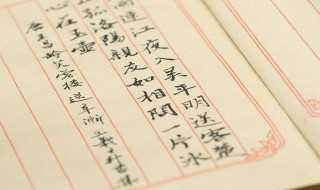 雨連江夜入吴平明送客楚
孤洛陽親友如相問一片冰
心在玉壺
唐王昌齡芙蓉樓送辛漸